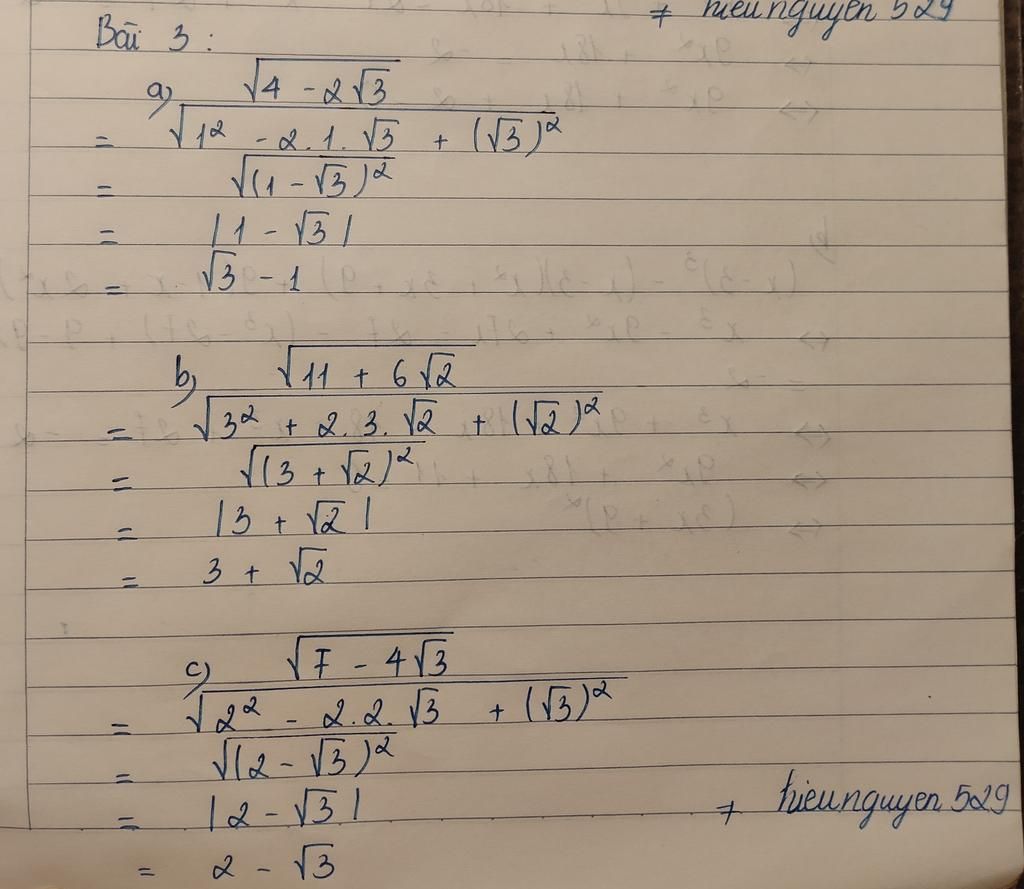 ≠ hieunguyen 529
Bài 3 :
a) √(4 - 2√3)
= √(1² - 2.1.√3 + (√3)²)
= √((1 - √3)²)
= |1 - √3|
= √3 - 1
b) √(11 + 6√2)
= √(3² + 2.3.√2 + (√2)²)
= √((3 + √2)²)
= |3 + √2|
= 3 + √2
c) √(7 - 4√3)
= √(2² - 2.2.√3 + (√3)²)
= √((2 - √3)²)
= |2 - √3|
≠ hieunguyen 529
= 2 - √3